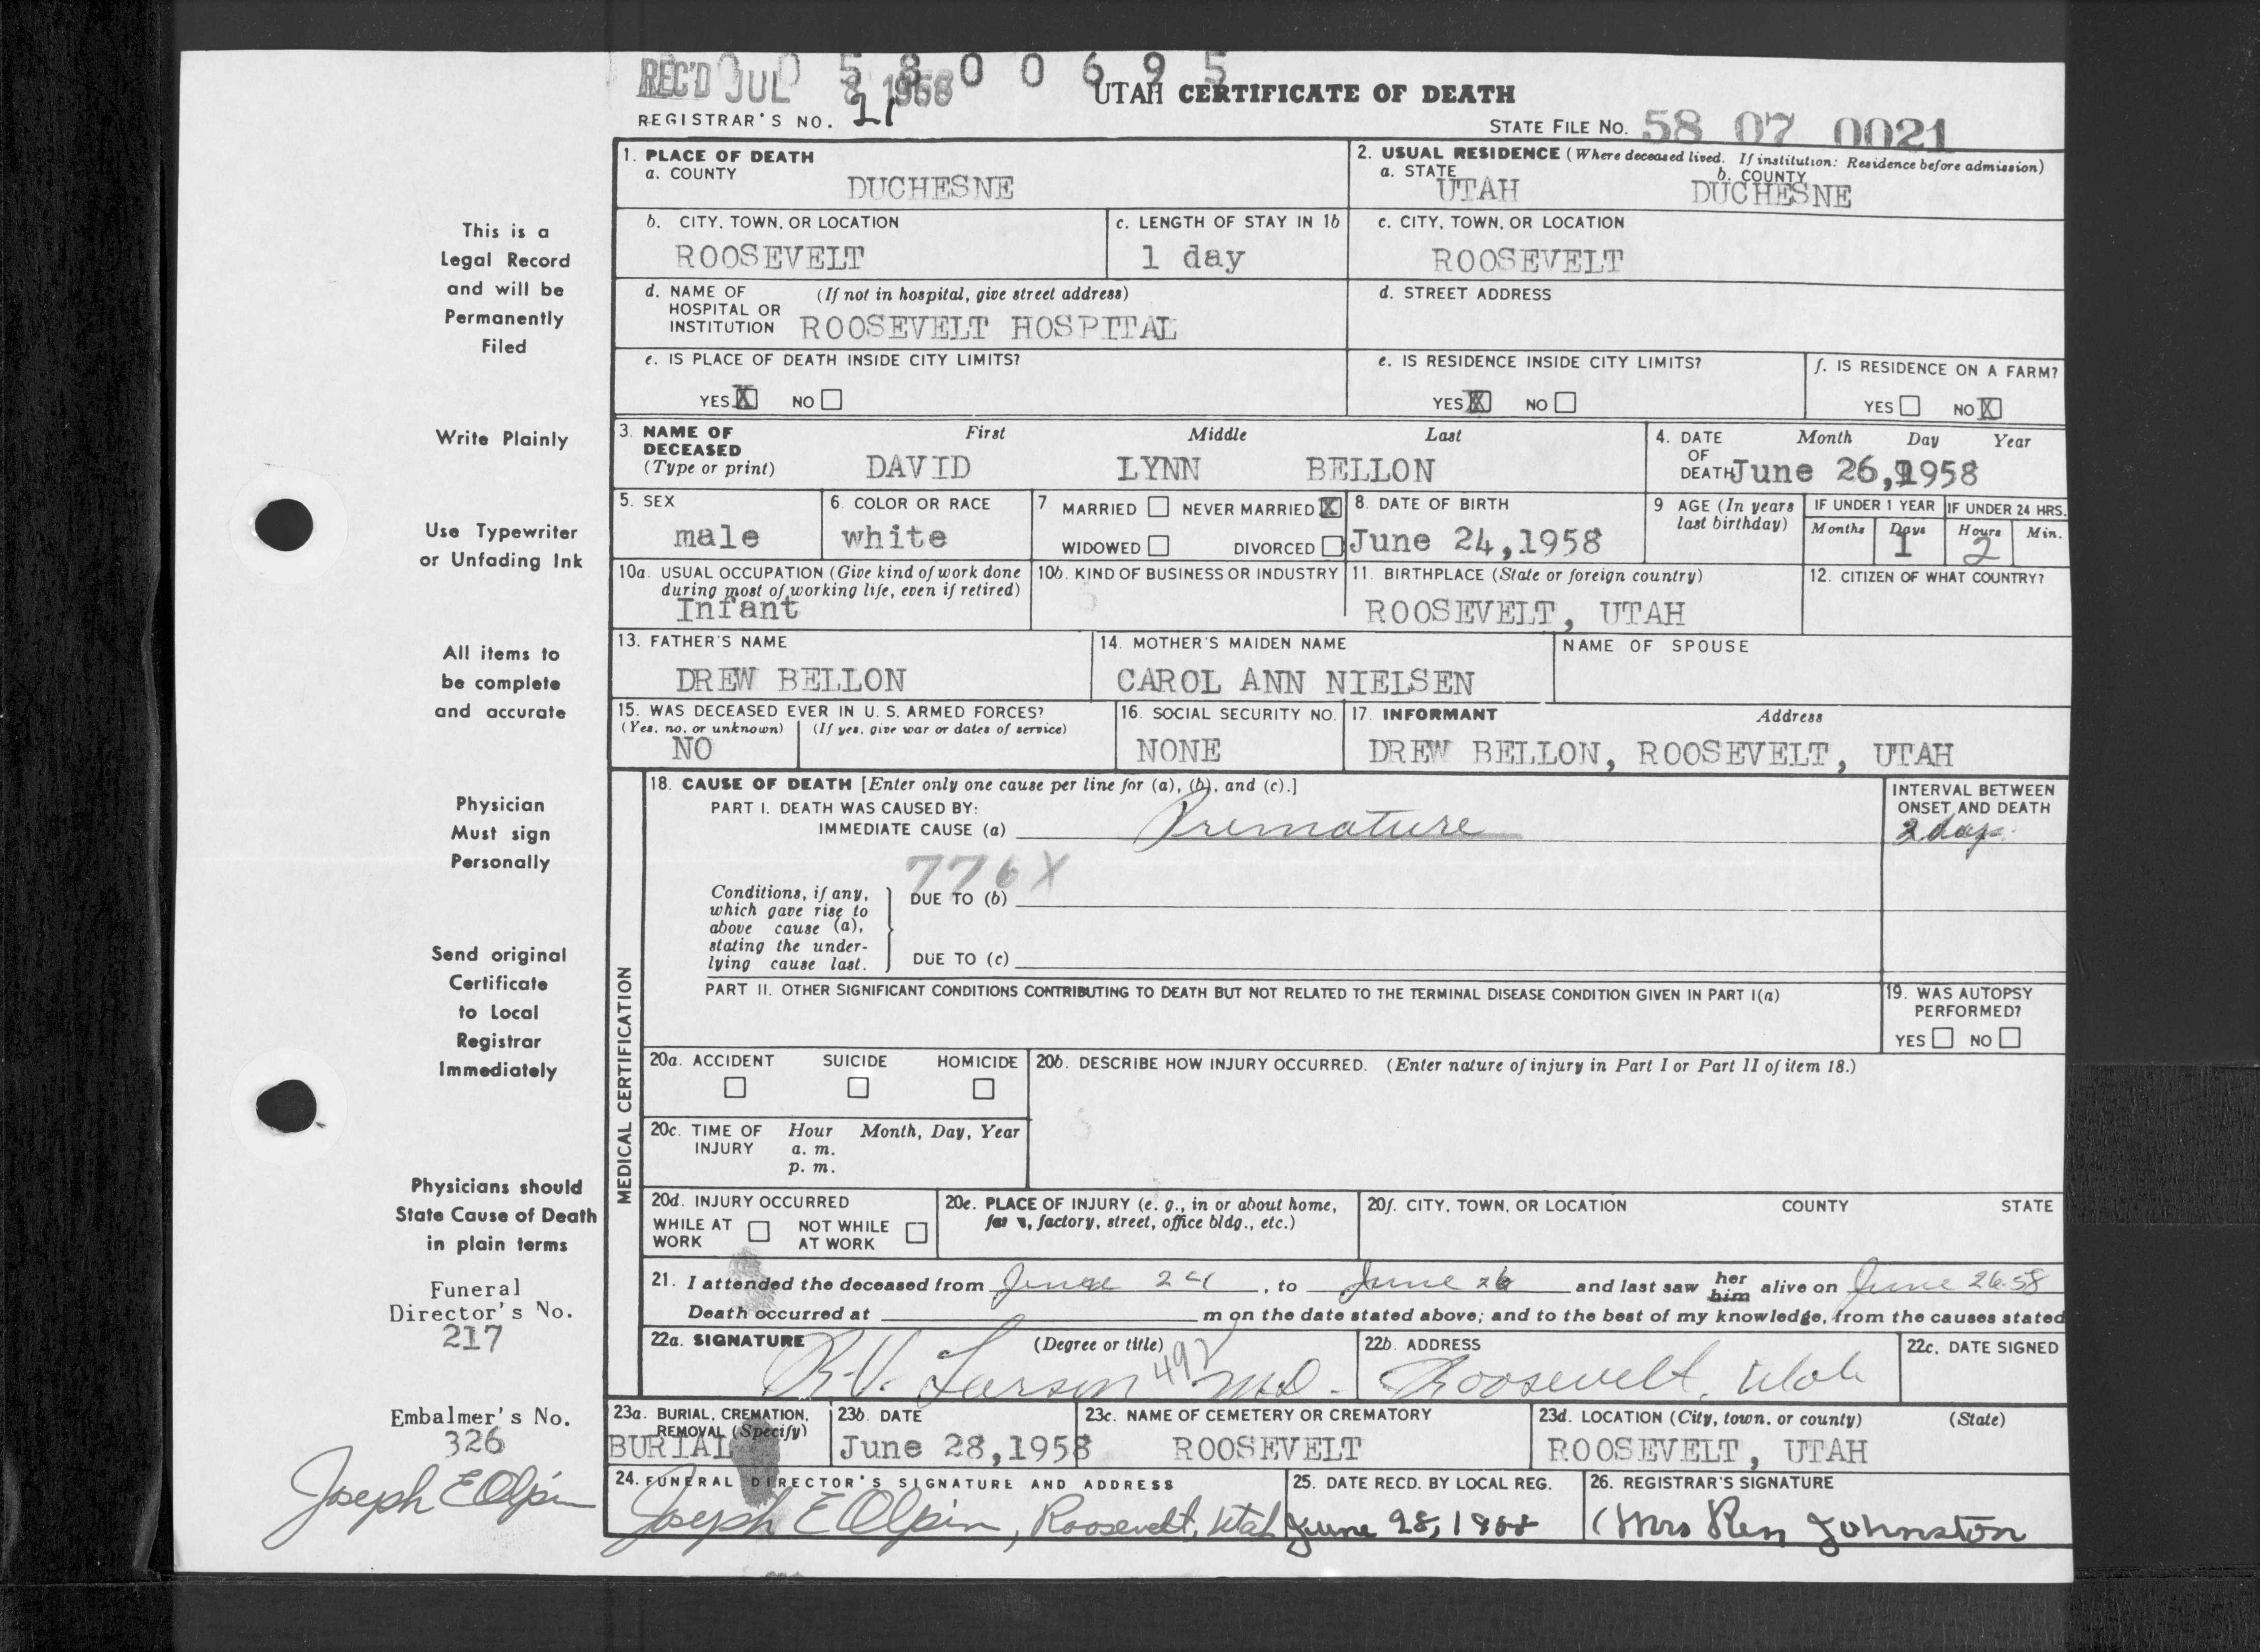 REC'D JUL 8 1958
0 5 8 0 0 6 9 5
UTAH CERTIFICATE OF DEATH
REGISTRAR'S NO. 21
STATE FILE NO. 58 07 0021
This is a
Legal Record
and will be
Permanently
Filed
Write Plainly
Use Typewriter
or Unfading Ink
All items to
be complete
and accurate
Physician
Must sign
Personally
Send original
Certificate
to Local
Registrar
Immediately
Physicians should
State Cause of Death
in plain terms
Funeral
Director's No.
217
Embalmer's No.
326
Joseph E Olpin
1. PLACE OF DEATH
a. COUNTY
DUCHESNE
2. USUAL RESIDENCE (Where deceased lived. If institution: Residence before admission)
a. STATE b. COUNTY
UTAH DUCHESNE
b. CITY, TOWN, OR LOCATION
ROOSEVELT
c. LENGTH OF STAY IN 1b
1 day
c. CITY, TOWN, OR LOCATION
ROOSEVELT
d. NAME OF (If not in hospital, give street address)
HOSPITAL OR
INSTITUTION ROOSEVELT HOSPITAL
d. STREET ADDRESS
e. IS PLACE OF DEATH INSIDE CITY LIMITS?
YES X NO
e. IS RESIDENCE INSIDE CITY LIMITS?
YES X NO
f. IS RESIDENCE ON A FARM?
YES NO X
3. NAME OF First Middle Last
DECEASED
(Type or print) DAVID LYNN BELLON
4. DATE Month Day Year
OF
DEATH June 26, 1958
5. SEX
male
6. COLOR OR RACE
white
7 MARRIED NEVER MARRIED X
WIDOWED DIVORCED
8. DATE OF BIRTH
June 24, 1958
9 AGE (In years
last birthday)
IF UNDER 1 YEAR IF UNDER 24 HRS.
Months Days Hours Min.
1 2
10a. USUAL OCCUPATION (Give kind of work done
during most of working life, even if retired)
Infant
10b. KIND OF BUSINESS OR INDUSTRY
11. BIRTHPLACE (State or foreign country)
ROOSEVELT, UTAH
12. CITIZEN OF WHAT COUNTRY?
13. FATHER'S NAME
DREW BELLON
14. MOTHER'S MAIDEN NAME
CAROL ANN NIELSEN
NAME OF SPOUSE
15. WAS DECEASED EVER IN U. S. ARMED FORCES?
(Yes, no, or unknown) (If yes, give war or dates of service)
NO
16. SOCIAL SECURITY NO.
NONE
17. INFORMANT Address
DREW BELLON, ROOSEVELT, UTAH
MEDICAL CERTIFICATION
18. CAUSE OF DEATH [Enter only one cause per line for (a), (b), and (c).]
PART I. DEATH WAS CAUSED BY:
IMMEDIATE CAUSE (a) Premature
INTERVAL BETWEEN
ONSET AND DEATH
2 days
776X
Conditions, if any,
which gave rise to
above cause (a),
stating the under-
lying cause last.
DUE TO (b)
DUE TO (c)
PART II. OTHER SIGNIFICANT CONDITIONS CONTRIBUTING TO DEATH BUT NOT RELATED TO THE TERMINAL DISEASE CONDITION GIVEN IN PART I(a)
19. WAS AUTOPSY
PERFORMED?
YES NO
20a. ACCIDENT SUICIDE HOMICIDE
20b. DESCRIBE HOW INJURY OCCURRED. (Enter nature of injury in Part I or Part II of item 18.)
20c. TIME OF Hour Month, Day, Year
INJURY a. m.
p. m.
20d. INJURY OCCURRED
WHILE AT NOT WHILE
WORK AT WORK
20e. PLACE OF INJURY (e. g., in or about home,
factory, street, office bldg., etc.)
20f. CITY, TOWN, OR LOCATION COUNTY STATE
21. I attended the deceased from June 24, to June 26 and last saw her him alive on June 26-58
Death occurred at m on the date stated above; and to the best of my knowledge, from the causes stated
22a. SIGNATURE (Degree or title)
R.V. Larson 492 MD.
22b. ADDRESS
Roosevelt, Utah
22c. DATE SIGNED
23a. BURIAL, CREMATION,
REMOVAL (Specify)
BURIAL
23b. DATE
June 28, 1958
23c. NAME OF CEMETERY OR CREMATORY
ROOSEVELT
23d. LOCATION (City, town, or county) (State)
ROOSEVELT, UTAH
24. FUNERAL DIRECTOR'S SIGNATURE AND ADDRESS
Joseph E Olpin, Roosevelt, Utah
25. DATE RECD. BY LOCAL REG.
June 28, 1958
26. REGISTRAR'S SIGNATURE
(Mrs Ren Johnston